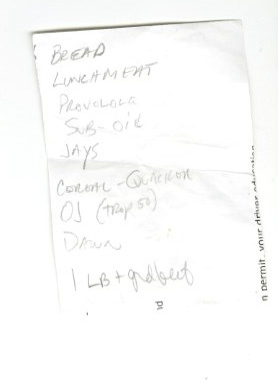 BREAD
LUNCHMEAT
PROVOLONE
SUB-OIL
JAYS
CEREAL - QUAKER
OJ (TROP 50)
DAWN
1 LB + grd beef
n permit, your driver education